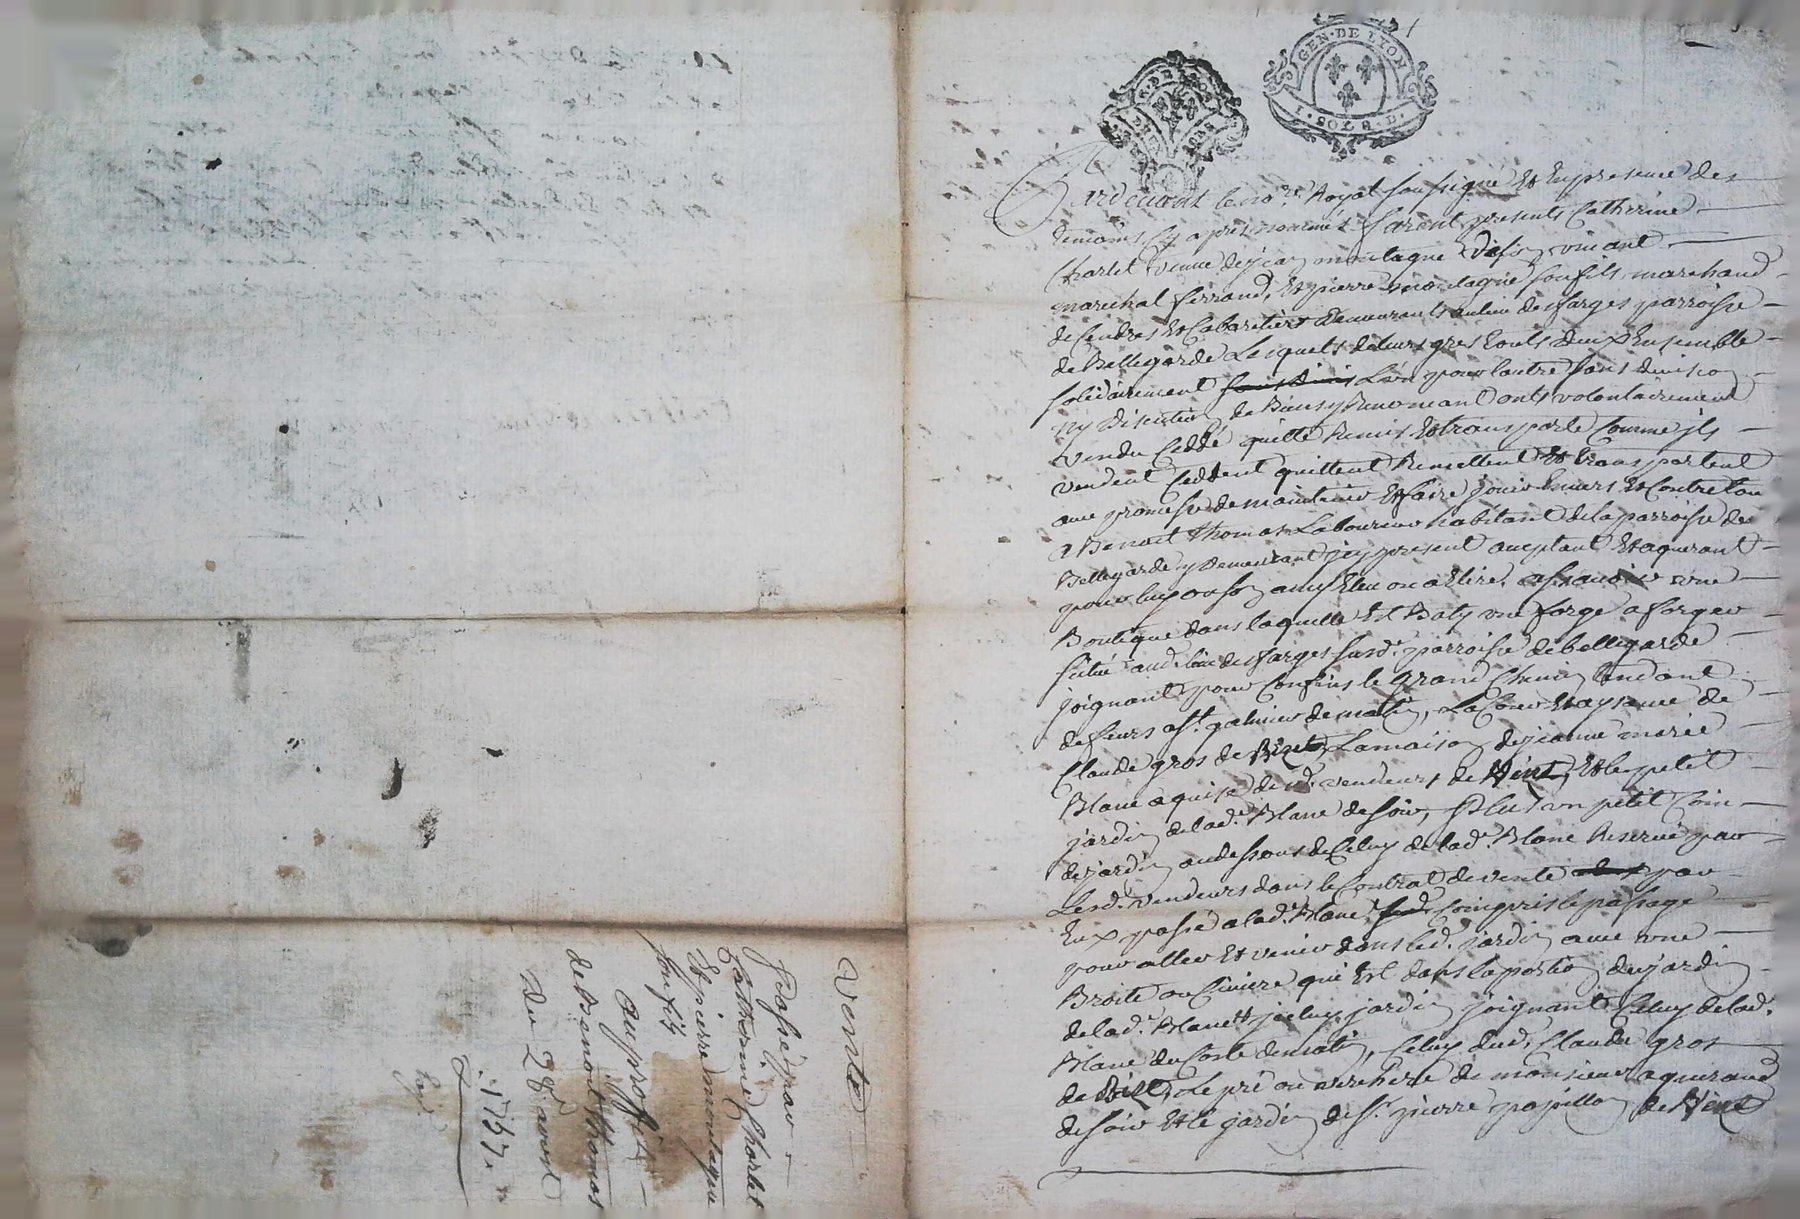 GEN · DE LYON
1 · SOL 8 D ·
Pardevant le no.re Royal soussigné Et En presence des
temoins Cy apres nommés furent presents Catherine
Charlet veuve de jean montagne vivant
marechal ferrand, Et pierre montagne son fils marchand
de Cendres Et Cabaretiers demeurants au lieu des farges parroisse
de Bellegarde Lesquels de leurs gres touts deux Ensemble
solidairement L'un pour lautre sans division
ny discution de Biens y Renoncant onts volontairement
vendu Ceddé quitté Remis Et transporté Comme jls
vendent Ceddent quittent Remettent Et transportent
avec promesse de maintenir Et faire jouir Envers Et Contre tous
a Benoit thomas Laboureur habitant de la parroisse de
Bellegarde y demeurant jcy present aceptant Et aquerant
pour luy ou son amy Eleu ou a Elire, assavoir une
Boutique dans laquelle Est Baty une forge a forger
situé aud. lieu des farges susd.e parroisse de bellegarde
joignant pour Confins le grand Chemin tendant
de feurs a s.t galmier de matin, La Cour Et aysance de
Claude gros de Bize, La maison de jeanne marie
Blanc aquise desd. vendeurs de vent, Et le petit
jardin de lad.e Blanc de soir, Plus un petit Coin
de jardin au dessous de Celuy de lad.e Blanc Reservé par
Lesd. vendeurs dans le Contrat de vente par
Eux passé a lad.e Blanc Compris le passage
pour aller Et venir dans led. jardin avec une
Droite ou Civiere qui Est dans la portion de jardin
de lad.e Blanc jceluy jardin joignant Celuy de lad.
Blanc du Costé de matin, Celuy dud. Claude gros
de Bize, Le pré ou verchere de monsieur aquerand
de soir Et le jardin de s.r pierre papillon de vent
vente
Passé par
Catherine Charlet
Et pierre montagne
son fils
au proffit
de Benoit thomas
du 28e avril
1757.